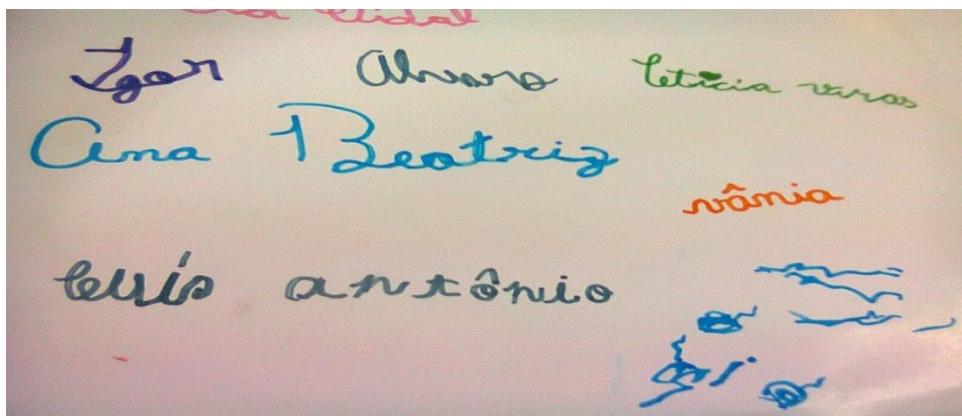 Vidal
Igor Alvaro letícia varas
Ana Beatriz
vânia
luís antônio